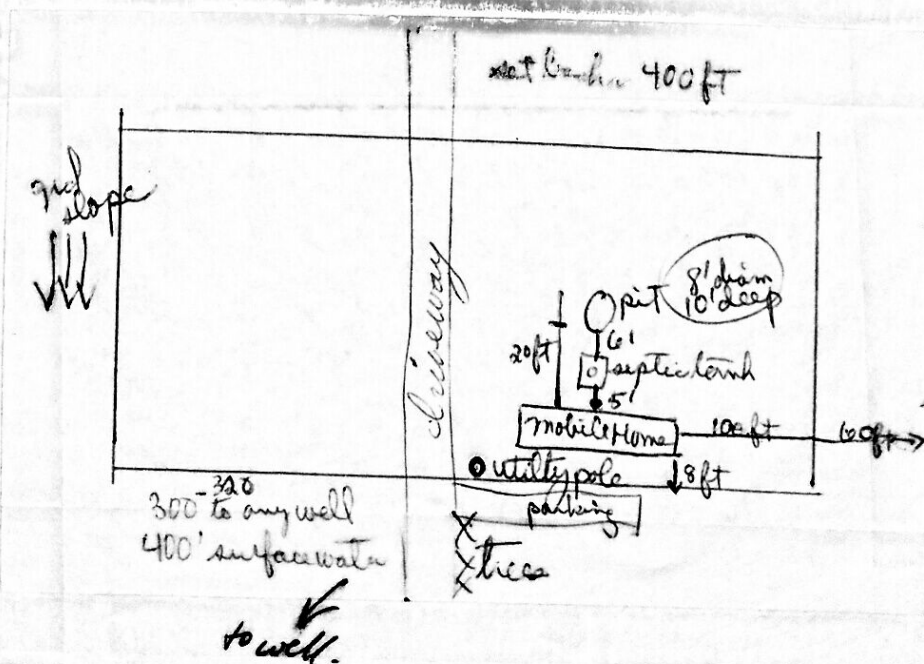 400ft
slope
driveway
8'diam
10'deep
pit
6'
20ft
septic tank
5'
Mobile Home
100ft
60ft
utility pole
8ft
parking
320
300- to any well
400' surface water
trees
to well.